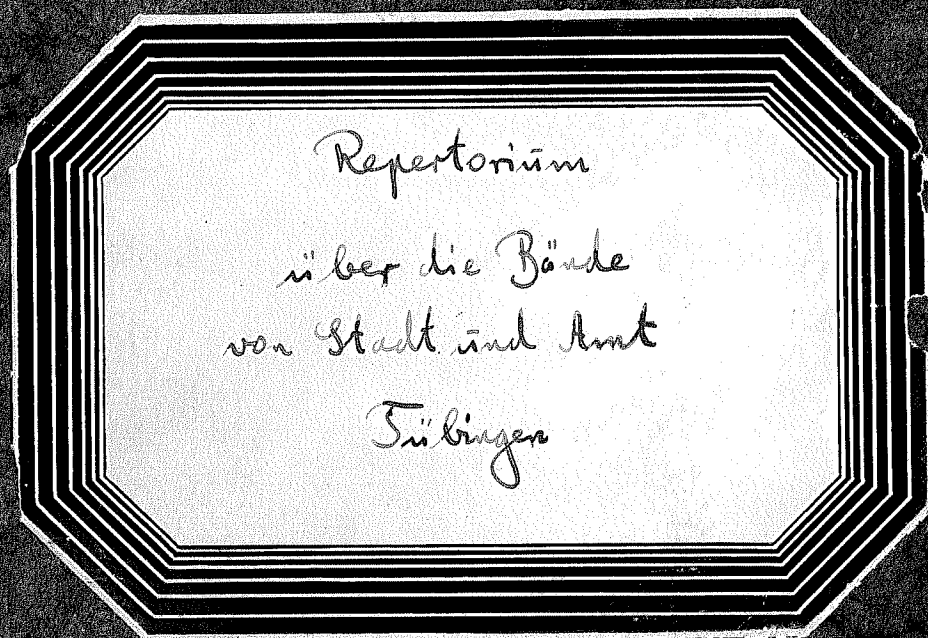 Repertorium
über die Bände
von Stadt und Amt
Tübingen